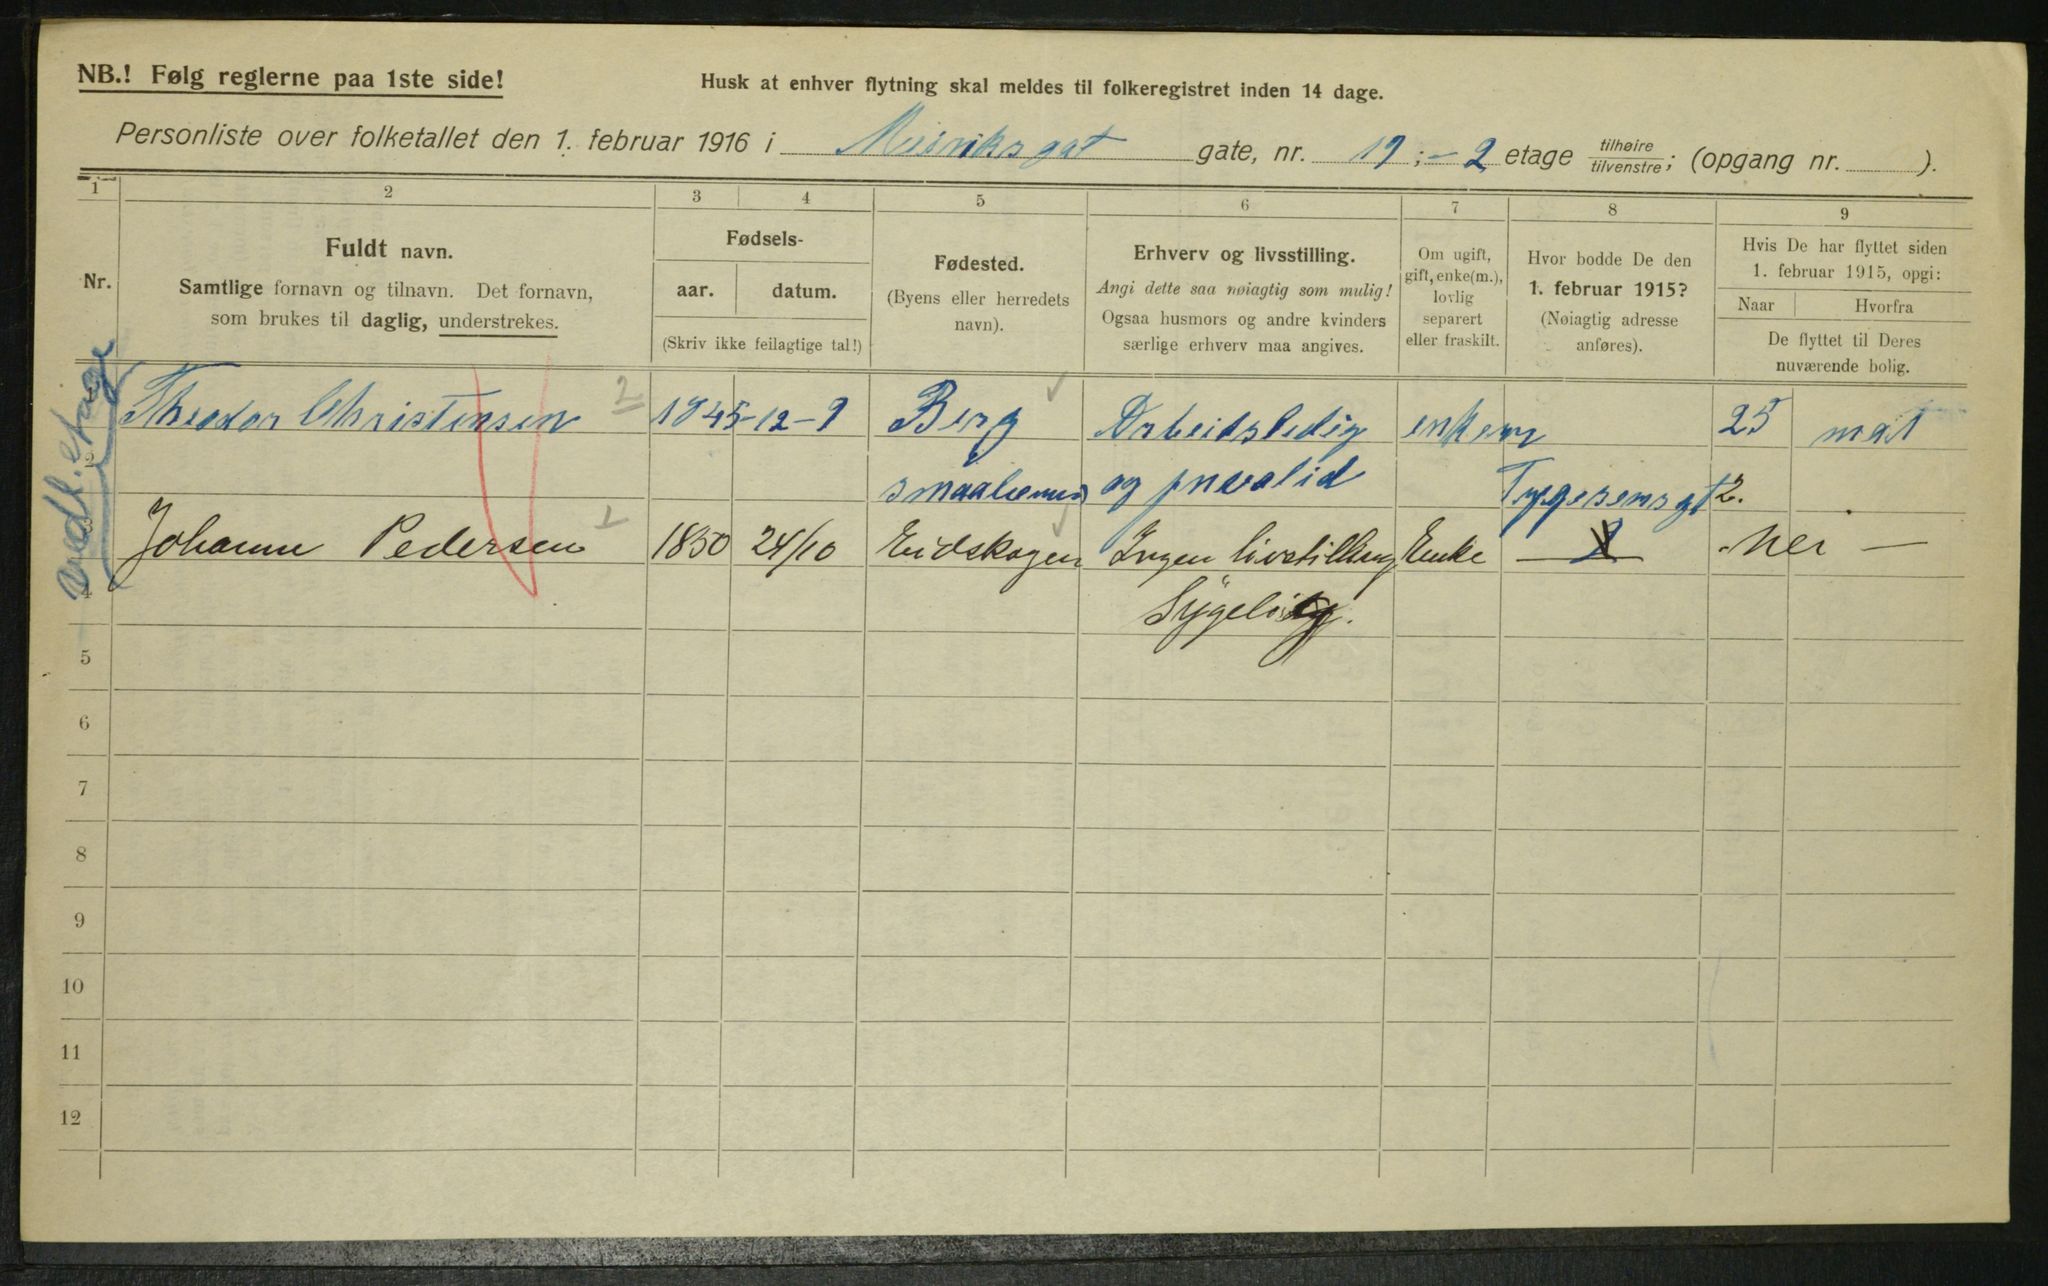 NB.! Følg reglerne paa 1ste side!
Husk at enhver flytning skal meldes til folkeregistret inden 14 dage.
Personliste over folketallet den 1. februar 1916 i Meiriksgat gate, nr. 19 ; - 2 etage tilhøire/tilvenstre; (opgang nr. ).
1 2 3 4 5 6 7 8 9
Nr.
Fuldt navn.
Samtlige fornavn og tilnavn. Det fornavn,
som brukes til daglig, understrekes.
Fødsels-
aar. datum.
(Skriv ikke feilagtige tal!)
Fødested.
(Byens eller herredets
navn).
Erhverv og livsstilling.
Angi dette saa nøiagtig som mulig!
Ogsaa husmors og andre kvinders
særlige erhverv maa angives.
Om ugift,
gift, enke(m.),
lovlig
separert
eller fraskilt.
Hvor bodde De den
1. februar 1915?
(Nøiagtig adresse
anføres).
Hvis De har flyttet siden
1. februar 1915, opgi:
Naar Hvorfra
De flyttet til Deres
nuværende bolig.
Theodor Christensen 2 1845-12-9 Berg Arbeidsledig enkem 25 mai
2 smaalenene og invalid Tygesensgt 2.
3 Johanne Pedersen 2 1850 24/10 Eidskogen Ingen livstilling Enke — nei —
4 Sygelig.
5
6
7
8
9
10
11
12